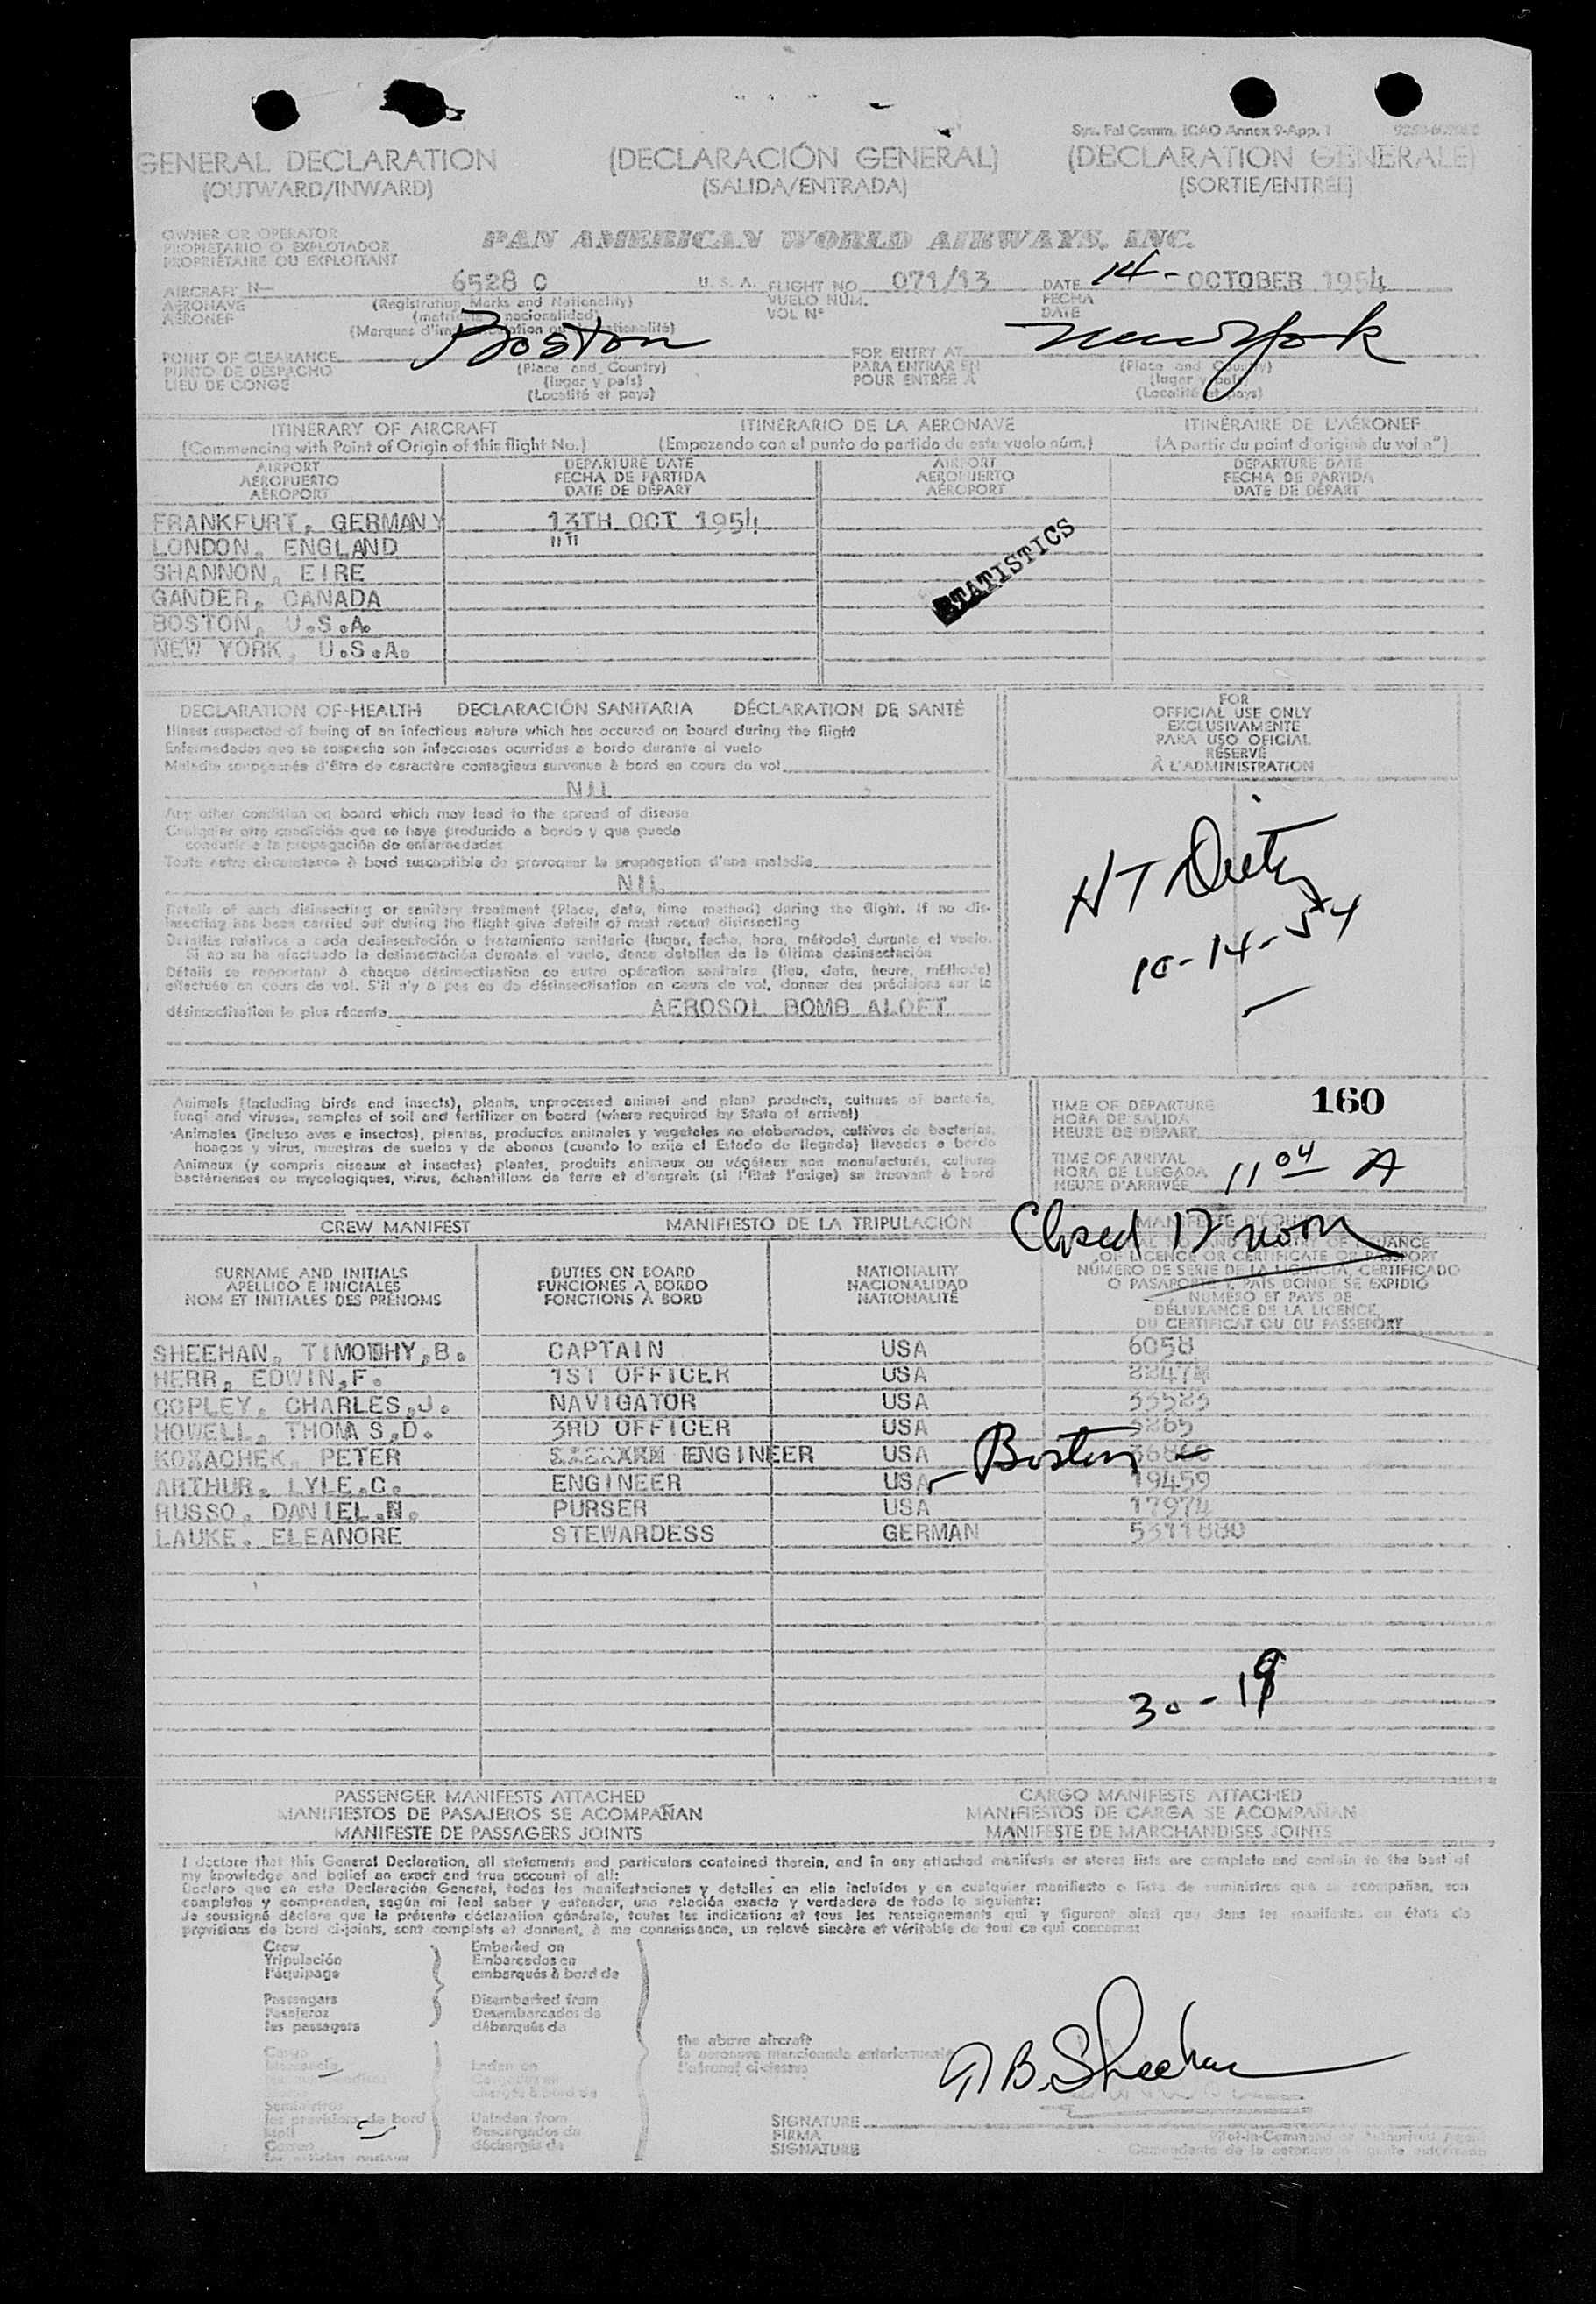 Sys. Fal Comm. ICAO Annex 9-App. 1
GENERAL DECLARATION (DECLARACIÓN GENERAL) (DECLARATION GENERALE)
(OUTWARD/INWARD) (SALIDA/ENTRADA) (SORTIE/ENTRÉE)
OWNER OR OPERATOR
PROPIETARIO O EXPLOTADOR
PROPRIÉTAIRE OU EXPLOITANT
PAN AMERICAN WORLD AIRWAYS, INC.
AIRCRAFT N— 6528 C U. S. A. FLIGHT NO. 071/13 DATE 14 - OCTOBER 1954
AERONAVE (Registration Marks and Nationality) VUELO NÚM. FECHA
AÉRONEF (matrícula nacionalidad) VOL N° DATE
(Marques d'immatriculation ou nationalité)
POINT OF CLEARANCE Boston FOR ENTRY AT New York
PUNTO DE DESPACHO (Place and Country) PARA ENTRAR EN (Place and Country)
LIEU DE CONGÉ (lugar y país) POUR ENTRÉE À (lugar y país)
(Localité et pays) (Localité et pays)
ITINERARY OF AIRCRAFT ITINERARIO DE LA AERONAVE ITINÉRAIRE DE L'AÉRONEF
(Commencing with Point of Origin of this flight No.) (Empezando con el punto de partida de este vuelo núm.) (A partir du point d'origine du vol n°)
AIRPORT DEPARTURE DATE AIRPORT DEPARTURE DATE
AEROPUERTO FECHA DE PARTIDA AEROPUERTO FECHA DE PARTIDA
AÉROPORT DATE DE DÉPART AÉROPORT DATE DE DÉPART
FRANKFURT, GERMANY 13TH OCT 1954
LONDON, ENGLAND "" 
SHANNON, EIRE
GANDER, CANADA
BOSTON, U.S.A.
NEW YORK, U.S.A.
STATISTICS
DECLARATION OF HEALTH DECLARACIÓN SANITARIA DÉCLARATION DE SANTÉ
Illness suspected of being of an infectious nature which has occured on board during the flight
Enfermedades que se sospecha son infecciosas ocurridas a bordo durante el vuelo
Maladie soupçonnée d'être de caractère contagieux survenue à bord en cours du vol
NIL
Any other condition on board which may lead to the spread of disease
Cualquier otra condición que se haya producido a bordo y que pueda
conducir a la propagación de enfermedades
Toute autre circonstance à bord susceptible de provoquer la propagation d'une maladie
NIL
Details of each disinsecting or sanitary treatment (Place, date, time method) during the flight. If no dis-
insecting has been carried out during the flight give details of most recent disinsecting
Detalles relativos a cada desinsectación o tratamiento sanitario (lugar, fecha, hora, método) durante el vuelo.
Si no se ha efectuado la desinsectación durante el vuelo, dense detalles de la última desinsectación
Détails se rapportant à chaque désinsectisation ou autre opération sanitaire (lieu, date, heure, méthode)
effectuée en cours de vol. S'il n'y a pas eu de désinsectisation en cours de vol, donner des précisions sur la
désinsectisation la plus récente AEROSOL BOMB ALOFT
FOR
OFFICIAL USE ONLY
EXCLUSIVAMENTE
PARA USO OFICIAL
RÉSERVÉ
À L'ADMINISTRATION
10-14-54
Animals (including birds and insects), plants, unprocessed animal and plant products, cultures of bacteria,
fungi and viruses, samples of soil and fertilizer on board (where required by State of arrival)
Animales (incluso aves e insectos), plantas, productos animales y vegetales no elaborados, cultivos de bacterias,
hongos y virus, muestras de suelos y de abonos (cuando lo exija el Estado de llegada) llevados a bordo
Animaux (y compris oiseaux et insectes) plantes, produits animaux ou végétaux non manufacturés, cultures
bactériennes ou mycologiques, virus, échantillons de terre et d'engrais (si l'État l'exige) se trouvant à bord
160
TIME OF DEPARTURE
HORA DE SALIDA
HEURE DE DÉPART
TIME OF ARRIVAL
HORA DE LLEGADA
HEURE D'ARRIVÉE 11 04 A
Closed 12 noon
CREW MANIFEST MANIFIESTO DE LA TRIPULACIÓN MANIFESTE D'ÉQUIPAGE
SURNAME AND INITIALS DUTIES ON BOARD NATIONALITY
APELLIDO E INICIALES FUNCIONES A BORDO NACIONALIDAD
NOM ET INITIALES DES PRÉNOMS FONCTIONS À BORD NATIONALITÉ
OF LICENCE OR CERTIFICATE OR PASSPORT
NÚMERO DE SERIE DE LA LICENCIA, CERTIFICADO
O PASAPORTE Y PAÍS DONDE SE EXPIDIÓ
NUMÉRO ET PAYS DE
DÉLIVRANCE DE LA LICENCE,
DU CERTIFICAT OU DU PASSEPORT
SHEEHAN, TIMOTHY,B. CAPTAIN USA 6058
HERR, EDWIN,F. 1ST OFFICER USA
COPLEY, CHARLES,J. NAVIGATOR USA 33583
HOWELL, THOMAS,D. 3RD OFFICER USA
PETER ENGINEER USA Boston
ARTHUR, LYLE,C. ENGINEER USA 19459
RUSSO, DANIEL,N. PURSER USA 17974
LAUKE, ELEANORE STEWARDESS GERMAN 5311880
30 - 19
PASSENGER MANIFESTS ATTACHED CARGO MANIFESTS ATTACHED
MANIFIESTOS DE PASAJEROS SE ACOMPAÑAN MANIFIESTOS DE CARGA SE ACOMPAÑAN
MANIFESTE DE PASSAGERS JOINTS MANIFESTE DE MARCHANDISES JOINTS
I declare that this General Declaration, all statements and particulars contained therein, and in any attached manifests or stores lists are complete and contain to the best of
my knowledge and belief an exact and true account of all:
Declaro que en esta Declaración General, todas las manifestaciones y detalles en ella incluídos y en cualquier manifiesto o lista de suministros que se acompañan, son
completos y comprenden, según mi leal saber y entender, una relación exacta y verdadera de todo lo siguiente:
Je soussigné déclare que la présente déclaration générale, toutes les indications et tous les renseignements qui y figurent ainsi que dans les manifestes ou états de
provisions de bord ci-joints, sont complets et donnent, à ma connaissance, un relevé sincère et véritable de tout ce qui concerne:
Crew Embarked on
Tripulación Embarcados en
l'équipage embarqués à bord de
Passengers Disembarked from
Pasajeros Desembarcados de
les passagers débarqués de
the above aircraft
la aeronave mencionada anteriormente
l'aéronef ci-dessus
Cargo
Mercancía Laden on
Cargados en
chargés à bord de
Suministros
les provisions de bord Unladen from
Mail Descargados de
Correo déchargés de
T B. Sheehan
SIGNATURE
FIRMA Pilot-in-Command or Authorized Agent
SIGNATURE Comandante de la aeronave o agente autorizado